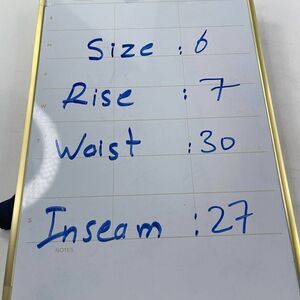 Size : 6
Rise : 7
Waist : 30
Inseam : 27
NOTES